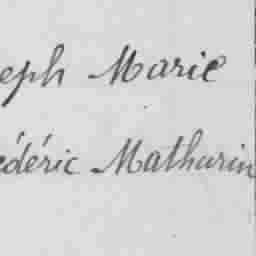 eph Marie
édéric Mathurin